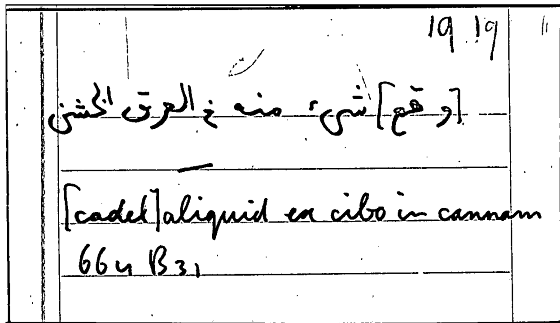 19 19
[وقع] شيء منه في العرق الخشن
[cadet] aliquid ex cibo in cannam
664 B31